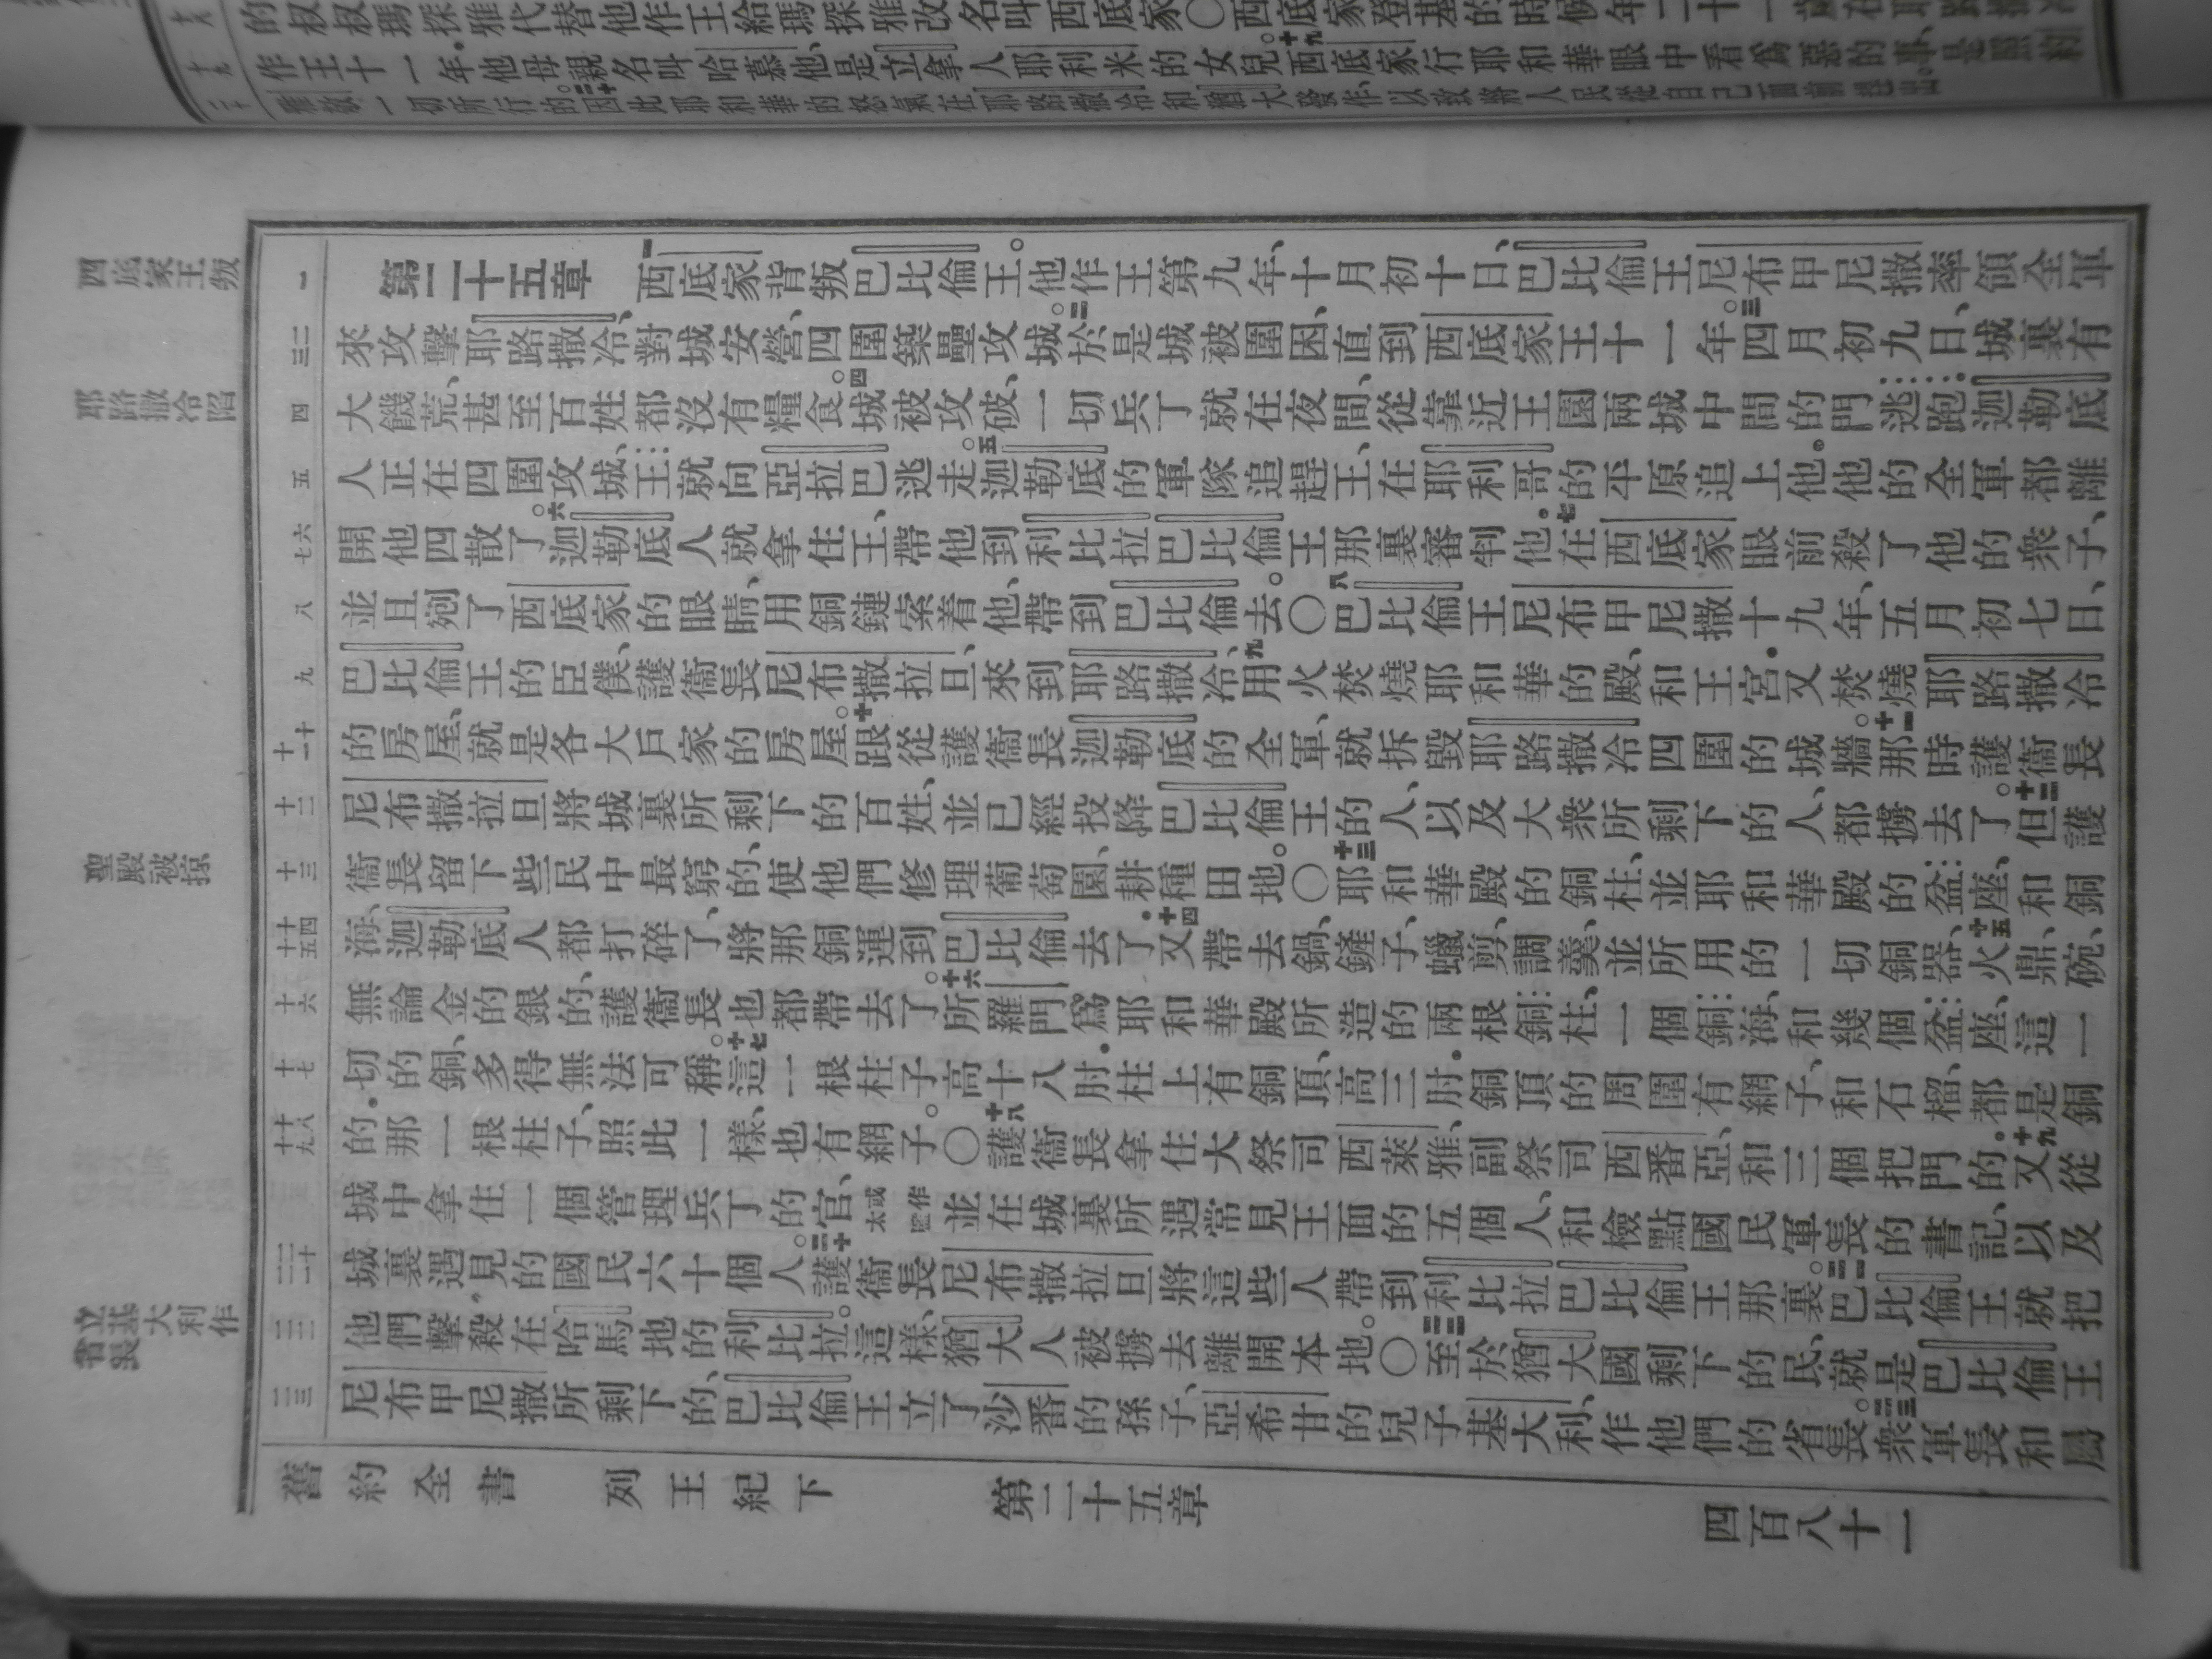 的叔叔瑪探雅代替他作王給瑪探雅改名叫西底家〇西底家登基的時候年二十一歲在耶路撒冷
作王十一年。他母親名叫哈慕他是立拿人耶利米的女兒。十九西底家行耶和華眼中看爲惡的事、是照約
雅敬一切所行的。二十因此耶和華的怒氣在耶路撒冷和猶大發作、以致將人民從自己面前趕出。
第二十五章 一西底家背叛巴比倫王。他作王第九年、十月初十日、巴比倫王尼布甲尼撒率領全軍
來攻擊耶路撒冷、對城安營、四圍築壘攻城。二於是城被圍困、直到西底家王十一年。三四月初九日、城裏有
大饑荒、甚至百姓都沒有糧食。四城被攻破、一切兵丁就在夜間、從靠近王園兩城中間的門逃跑迦勒底
人正在四圍攻城、王就向亞拉巴逃走。五迦勒底的軍隊追趕王、在耶利哥的平原追上他.他的全軍都離
開他四散了。六迦勒底人就拿住王、帶他到利比拉巴比倫王那裏審判他.七在西底家眼前殺了他的衆子、
並且剜了西底家的眼睛、用銅鏈索着他、帶到巴比倫去。〇八巴比倫王尼布甲尼撒十九年、五月初七日、
巴比倫王的臣僕、護衞長尼布撒拉旦來到耶路撒冷、九用火焚燒耶和華的殿、和王宮.又焚燒耶路撒冷
的房屋、就是各大戶家的房屋。十跟從護衞長迦勒底的全軍、就拆毀耶路撒冷四圍的城牆。十一那時護衞長
尼布撒拉旦將城裏所剩下的百姓、並已經投降巴比倫王的人、以及大衆所剩下的人、都擄去了。十二但護
衞長留下些民中最窮的、使他們修理葡萄園、耕種田地。〇十三耶和華殿的銅柱、並耶和華殿的盆座、和銅
海、迦勒底人都打碎了、將那銅運到巴比倫去了.十四又帶去鍋、鏟子、蠟剪、調羹、並所用的一切銅器、十五火鼎、碗、
無論金的銀的、護衞長也都帶去了。十六所羅門爲耶和華殿所造的兩根銅柱、一個銅海、和幾個盆座、這一
切的銅、多得無法可稱。十七這一根柱子高十八肘.柱上有銅頂、高三肘.銅頂的周圍有網子、和石榴、都是銅
的.那一根柱子、照此一樣、也有網子。〇十八護衞長拿住大祭司西萊雅、副祭司西番亞、和三個把門的.十九又從
城中拿住一個管理兵丁的官、或作太監並在城裏所遇常見王面的五個人、和檢點國民軍長的書記、以及
城裏遇見的國民六十個人。二十護衞長尼布撒拉旦將這些人帶到利比拉巴比倫王那裏。二十一巴比倫王就把
他們擊殺在哈馬地的利比拉。這樣、猶大人被擄去離開本地。〇二十二至於猶大國剩下的民、就是巴比倫王
尼布甲尼撒所剩下的、巴比倫王立了沙番的孫子、亞希甘的兒子基大利、作他們的省長。二十三衆軍長和屬
舊約全書 列王紀下 第二十五章 四百八十一
西底家王叛
耶路撒冷陷
聖殿被掠
立基大利作省長